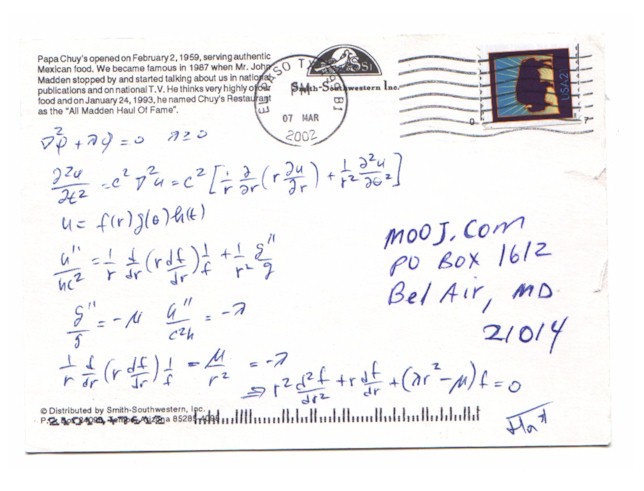 Papa Chuy's opened on February 2, 1959, serving authentic
Mexican food. We became famous in 1987 when Mr. John
Madden stopped by and started talking about us in national
publications and on national T.V. He thinks very highly of our
food and on January 24, 1993, he named Chuy's Restaurant
as the "All Madden Haul Of Fame".
EL PASO TX
PM
07 MAR
2002
Smith-Southwestern Inc.
USA
∇²φ + λφ = 0 λ ≥ 0
∂²u/∂t² = c² ∇²u = c² [1/r ∂/∂r (r ∂u/∂r) + 1/r² ∂²u/∂θ²]
u = f(r)g(θ)h(t)
h''/hc² = 1/r d/dr (r df/dr) 1/f + 1/r² g''/g
g''/g = -μ h''/c²h = -λ
1/r d/dr (r df/dr) 1/f - μ/r² = -λ
⇒ r² d²f/dr² + r df/dr + (λr² - μ) f = 0
MOOJ.COM
PO BOX 1612
Bel Air, MD
21014
© Distributed by Smith-Southwestern, Inc.